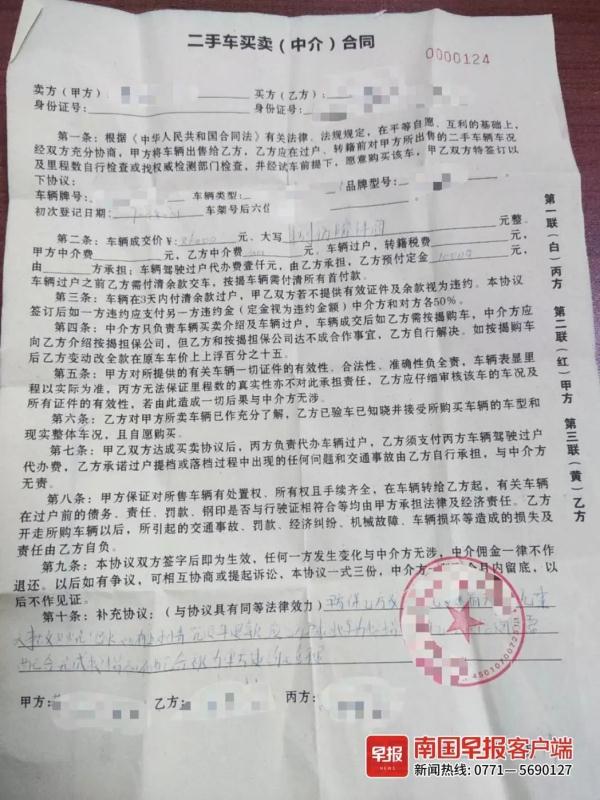 二手车买卖（中介）合同
0000124
卖方（甲方）： 买方（乙方）：
身份证号： 身份证号：
第一条：根据《中华人民共和国合同法》有关法律、法规规定，在平等自愿、互利的基础上，
经双方充分协商，甲方将车辆出售给乙方，乙方应在过户、转籍前对甲方所出售的二手车辆车况
及里程数自行检查或找权威检测部门检查，并经试车前提下，愿意购买该车，甲乙双方特签订以
下协议：
车辆牌号： 车辆类型： /品牌型号：
初次登记日期： 车架号后六位
第二条：车辆成交价¥： 元、大写 元整。
甲方中介费 元，乙方中介费 元。车辆过户，转籍税费
由 方承担；车辆驾驶过户代办费壹仟元，由乙方承担，乙方预付定金
车辆过户之前乙方需付清余款交车，按揭车辆需付清所有首付款。
第三条：车辆在3天内付清余款过户，甲乙双方若不提供有效证件及余款视为违约。本协议
签订后如一方违约应支付另一方违约金（定金视为违约金额）中介方和对方各50%。
第四条：中介方只负责车辆买卖介绍及车辆过户，车辆成交后如乙方需按揭购车，中介方应
向乙方介绍按揭担保公司，但乙方和按揭担保公司达不成合作事宜，乙方自行解决。如按揭购车
后乙方变动改全款在原车车价上上浮百分之十五。
第五条：甲方对所提供的有关车辆一切证件的有效性、合法性、准确性负全责，车辆表显里
程以实际为准，丙方无法保证里程数的真实性亦不对此承担责任，乙方应仔细审核该车的车况及
所有证件的有效性，若由此造成一切后果与中介方无涉。
第六条：乙方对甲方所卖车辆已作充分了解，乙方已验车已知晓并接受所购买车辆的车型和
现实整体车况，且自愿购买。
第七条：甲乙双方达成买卖协议后，丙方负责代办车辆过户，乙方须支付丙方车辆驾驶过户
代办费，乙方承诺过户提档或落档过程中出现的任何问题和交通事故由乙方自行承担，与中介方
无责。
第八条：甲方保证对所售车辆有处置权、所有权且手续齐全，在车辆转给乙方起，有关车辆
在过户前的债务、责任、罚款、钢印是否与行驶证相符合等均由甲方承担法律及经济责任。乙方
开走所购车辆以后，所引起的交通事故、罚款、经济纠纷、机械故障、车辆损坏等造成的损失及
责任由乙方自负。
第九条：本协议双方签字后即为生效，任何一方发生变化与中介方无涉，中介佣金一律不作
退还。以后如有争议，可相互协商或提起诉讼，本协议一式三份，中介方 月内留底，以
后不作见证。
第十条：补充协议：（与协议具有同等法律效力）
甲方： 乙方： 丙方：
第一联（白）丙方
第二联（红）甲方
第三联（黄）乙方
早报
NEWS
南国早报客户端
新闻热线：0771—5690127